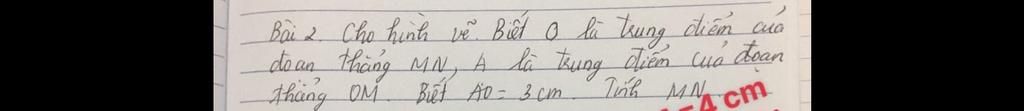 Bài 2. Cho hình vẽ. Biết O là trung điểm của
đoạn thẳng MN, A là trung điểm của đoạn
thẳng OM. Biết AO = 3 cm. Tính MN.
=4 cm